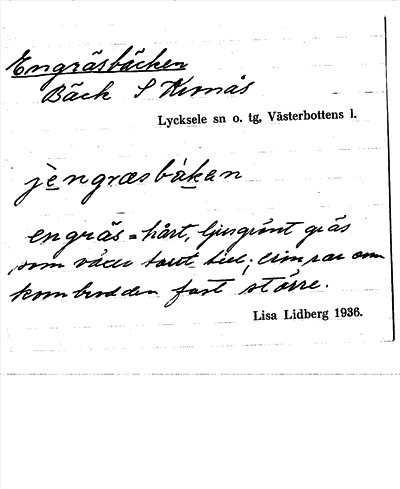 Engräsbäcken
Bäck S Kirnås
Lycksele sn o. tg, Västerbottens l.
jèngræsbäkan
engräs = hårt, ljusgrönt gräs
som växer tätt
kornbrodden fast större.
Lisa Lidberg 1936.